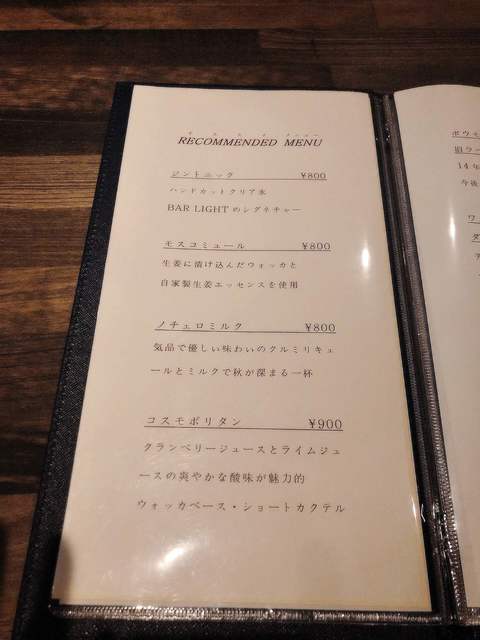 RECOMMENDED MENU
ジントニック ¥800
ハンドカットクリア氷
BAR LIGHTのシグネチャー
モスコミュール ¥800
生姜に漬け込んだウォッカと
自家製生姜エッセンスを使用
ノチェロミルク ¥800
気品で優しい味わいのクルミリキュ
ールとミルクで秋が深まる一杯
コスモポリタン ¥900
クランベリージュースとライムジュ
ースの爽やかな酸味が魅力的
ウォッカベース・ショートカクテル
14年
今後